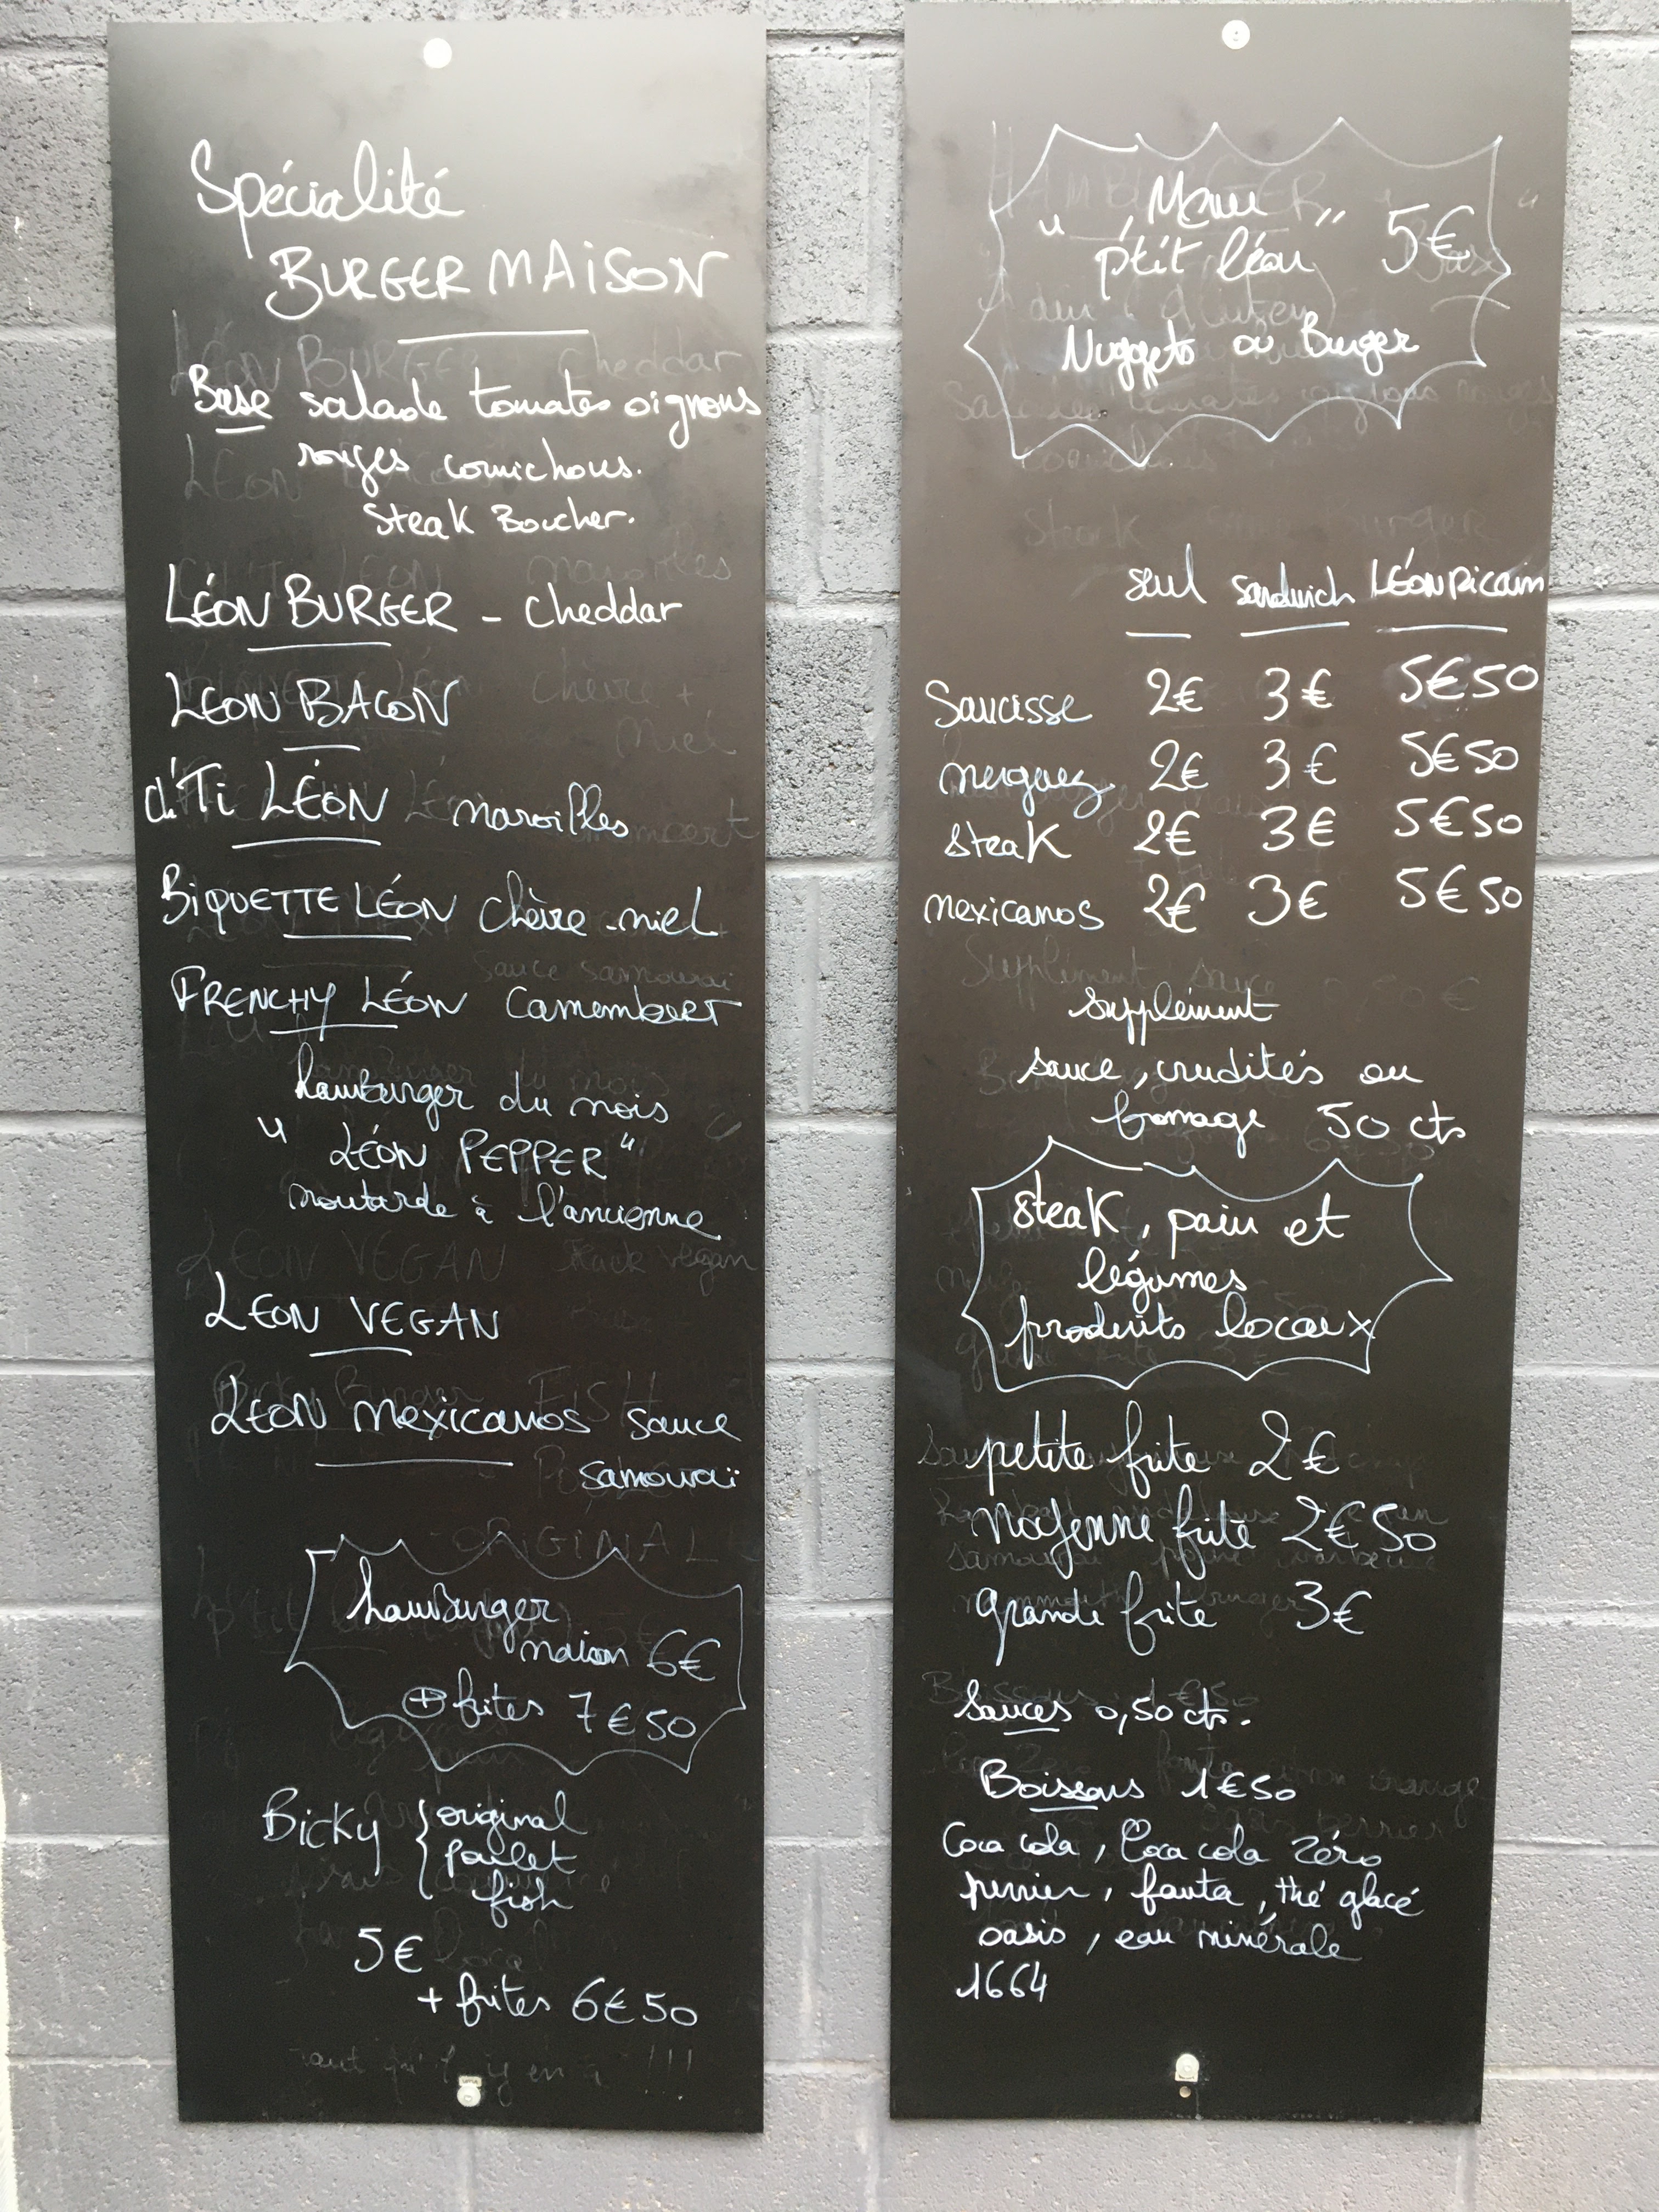 Spécialité
BURGER MAISON
Base salade tomates oignons
rouges cornichons.
Steak Boucher.
LÉON BURGER - Cheddar
LEON BACON
ch'Ti LÉON maroilles
BiQUETTE LÉON chèvre-miel
FRENCHY LÉON Camembert
hamburger du mois
" LÉON PEPPER "
moutarde à l'ancienne
LEON VEGAN
LEON mexicanos sauce
samouraï
hamburger
maison 6€
+ frites 7€50
Bicky { original
poulet
fish
5€
+ frites 6€50
Menu
" p'tit léon " 5€
Nuggets ou Burger
seul sandwich LÉONricain
Saucisse 2€ 3€ 5€50
merguez 2€ 3€ 5€50
steak 2€ 3€ 5€50
mexicanos 2€ 3€ 5€50
supplément
sauce, crudités ou
fromage 50 cts
steak, pain et
légumes
produits locaux
petite frite 2€
moyenne frite 2€50
grande frite 3€
Sauces 0,50 cts.
Boissons 1€50
Coca cola, Coca cola Zéro
perrier, fanta, thé glacé
oasis, eau minérale
1664